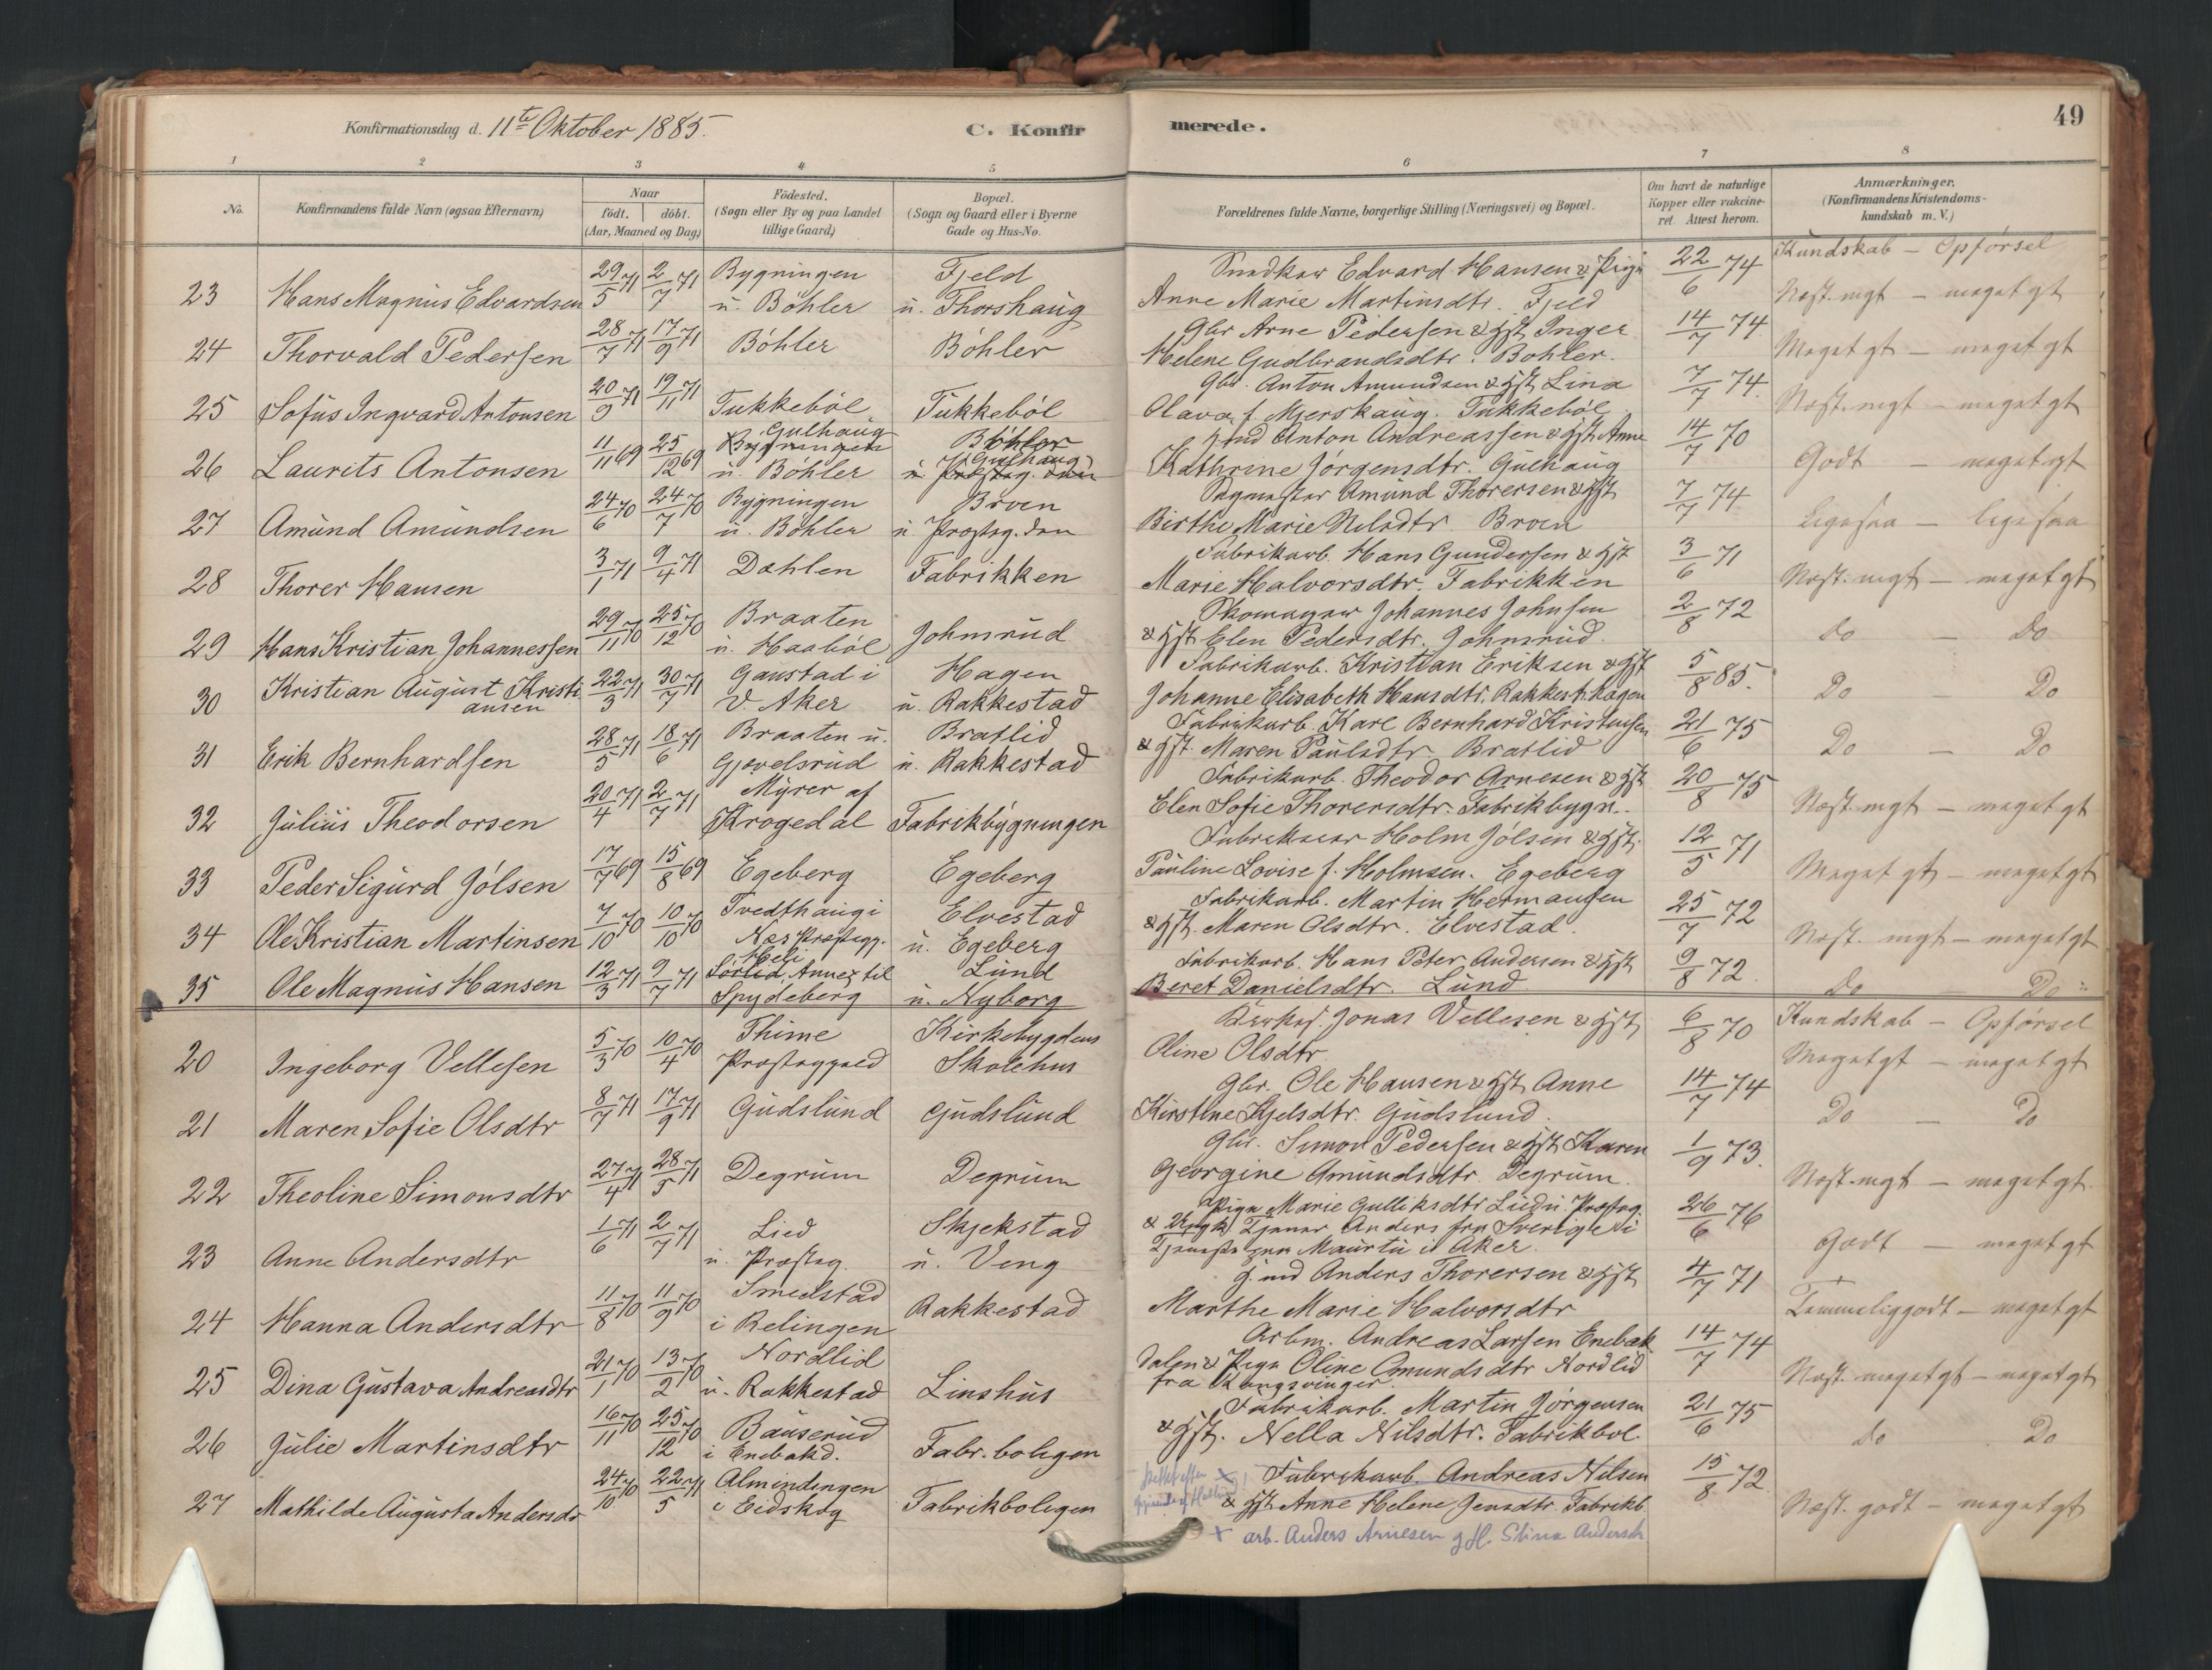 Konfirmationsdag d. 11te Oktober 1885.
C. Konfir
merede.
49
1 2 3 4 5 6 7 8
No.
Konfirmandens fulde Navn (ogsaa Efternavn)
Naar
født. døbt.
(Aar, Maaned og Dag)
Fødested.
(Sogn eller By og paa Landet
tillige Gaard)
Bopæl.
(Sogn og Gaard eller i Byerne
Gade og Hus-No.
Forældrenes fulde Navne, borgerlige Stilling (Næringsvei) og Bopæl.
Om havt de naturlige
Kopper eller vakcine-
ret. Attest herom.
Anmærkninger.
(Konfirmandens Kristendoms-
kundskab m. V.)
Kundskab - Opførsel
23 Hans Magnus Edvardsen 29/5 71 2/7 71 Bygningen u. Bøhler Fjeld u. Thorshaug
Edvard Hansen & Pige
Anne Marie Martinsdtr. Fjeld 22/6 74 Næst. mgt - meget gt
24 Thorvald Pedersen 28/7 71 17/9 71 Bøhler Bøhler
Gbr Arne Pedersen & Hst Inger
Helene Gudbrandsdtr. Bøhler. 14/7 74 Meget gt - meget gt
25 Sofus Ingvard Antonsen 20/9 71 19/11 71 Tukkebøl Tukkebøl
Gbr. Anton Amundsen & Hst Lina
Olava f. Mjerskaug. Tukkebøl 7/7 74. Næst. mgt - meget gt
26 Laurits Antonsen 11/11 69 25/12 69 Gulhaug Bygningen u. Bøhler Bøhler Gulhaug
Anton Andreassen & Hst Anne
Kathrine Jørgensdtr. Gulhaug 14/7 70 Godt - meget gt
27 Amund Amundsen 24/6 70 24/7 70 Bygningen u. Bøhler Broen u. Præsteg.
Amund Thorersen & Hst
Birthe Marie Nilsdtr. Broen 7/7 74 Ligesaa - ligesaa
28 Thorer Hansen 3/1 71 9/4 71 Dahlen Fabrikken
Fabrikarb. Hans Gundersen & Hst
Marie Halvorsdtr. Fabrikken 3/6 71 Næst. mgt - meget gt
29 Hans Kristian Johannessen 29/11 70 25/12 70 Braaten u. Haabøl Johnsrud
Skomager Johannes Johnsen
& Hst Elen Pedersdtr. Johnsrud. 2/8 72 Do - Do
30 Kristian August Kristi
ansen 22/3 71 30/7 71 Gaustad i V. Aker Hagen u. Rakkestad
Fabrikarb. Kristian Eriksen & Hst
Johanne Elisabeth Hansdtr. Rakkest. Hagen 5/8 85. Do - Do
31 Erik Bernhardsen 28/5 71 18/6 71 Braaten u. Gjøvelsrud Bratlid u. Rakkestad
Fabrikarb. Karl Bernhard Kristensen
& Hst. Maren Paulsdtr Bratlid 21/6 75 Do - Do
32 Julius Theodorsen 20/4 71 2/7 71 Myrer af Krogedal Fabrikbygningen
Fabrikarb. Theodor Arnesen & Hst
Elen Sofie Thorersdtr. Fabrikbygn. 20/8 75 Næst mgt - meget gt
33 Peder Sigurd Jølsen 17/7 69 15/8 69 Egeberg Egeberg
Fabrikeier Holm Jølsen & Hst.
Pauline Lovise f. Holmsen. Egeberg 12/5 71 Meget gt - meget gt
34 Ole Kristian Martinsen 7/10 70 10/10 70 Tvedthaug i Næs Præstegj. Elvestad u. Egeberg
Fabrikarb. Martin Hermansen
& Hst. Maren Olsdtr. Elvestad. 25/7 72 Næst. mgt - meget gt
35 Ole Magnus Hansen 12/3 71 9/7 71 Heli Sørlid, Annex til Spydeberg Lund u. Nyborg
Fabrikarb. Hans Peter Andersen & Hst
Beret Danielsdtr. Lund 9/8 72. Do Do
Kundskab - Opførsel
20 Ingeborg Vellesen 5/3 70 10/4 70 Thime Præstegjeld Kirkebygdens Skolehus
Jonas Vellesen & Hst
Oline Olsdtr 6/8 70 Meget gt - meget gt
21 Maren Sofie Olsdtr 8/7 71 17/9 71 Gudslund Gudslund
Gbr. Ole Hansen & Hst Anne
Kirstine Kjelsdtr. Gudslund. 14/7 74 Do - Do
22 Theoline Simonsdtr 27/4 71 28/5 71 Degrum Degrum
Gbr. Simon Pedersen & Hst Karen
Georgine Amundsdtr. Degrum. 1/9 73. Næst. mgt - meget gt.
23 Anne Andersdtr 1/6 71 2/7 71 Lied u. Præsteg. Skjekstad u. Veng
Pige Marie Gulliksdtr Lied u. Præsteg.
& Ungk Tjener Anders fra Sverige i
Tjeneste i Aker. 26/6 76 Godt - meget gt
24 Hanna Andersdtr 11/8 70 11/9 70 Smedstad i Relingen Rakkestad
Anders Thorersen & Hst
Marthe Marie Halvorsdtr 4/7 71 Temmelig godt - meget gt
25 Dina Gustava Andreasdtr 21/1 70 13/2 70 Nordlid u. Rakkestad Linshus
Arbm. Andreas Larsen Enebak
dalen & Pige Oline Amundsdtr Nordlid
fra Kongsvinger. 14/7 74 Næst. meget gt - meget gt
26 Julie Martinsdtr 16/11 70 25/12 70 Bauserud i Enebakd. Fabr. boligen
Fabrikarb. Martin Jørgensen
& Hst. Nella Nilsdtr. Fabrikbol. 21/6 75 do Do
27 Mathilde Augusta Andersdr 24/10 70 22/5 71 Almindingen i Eidskog Fabrikboligen
Fabrikarb. Andreas Nilsen
& Hst Anne Helene Jensdtr. Fabrikb. 15/8 72. Næst. godt - meget gt
x arb. Anders Arnesen g H. Stina Andersdr